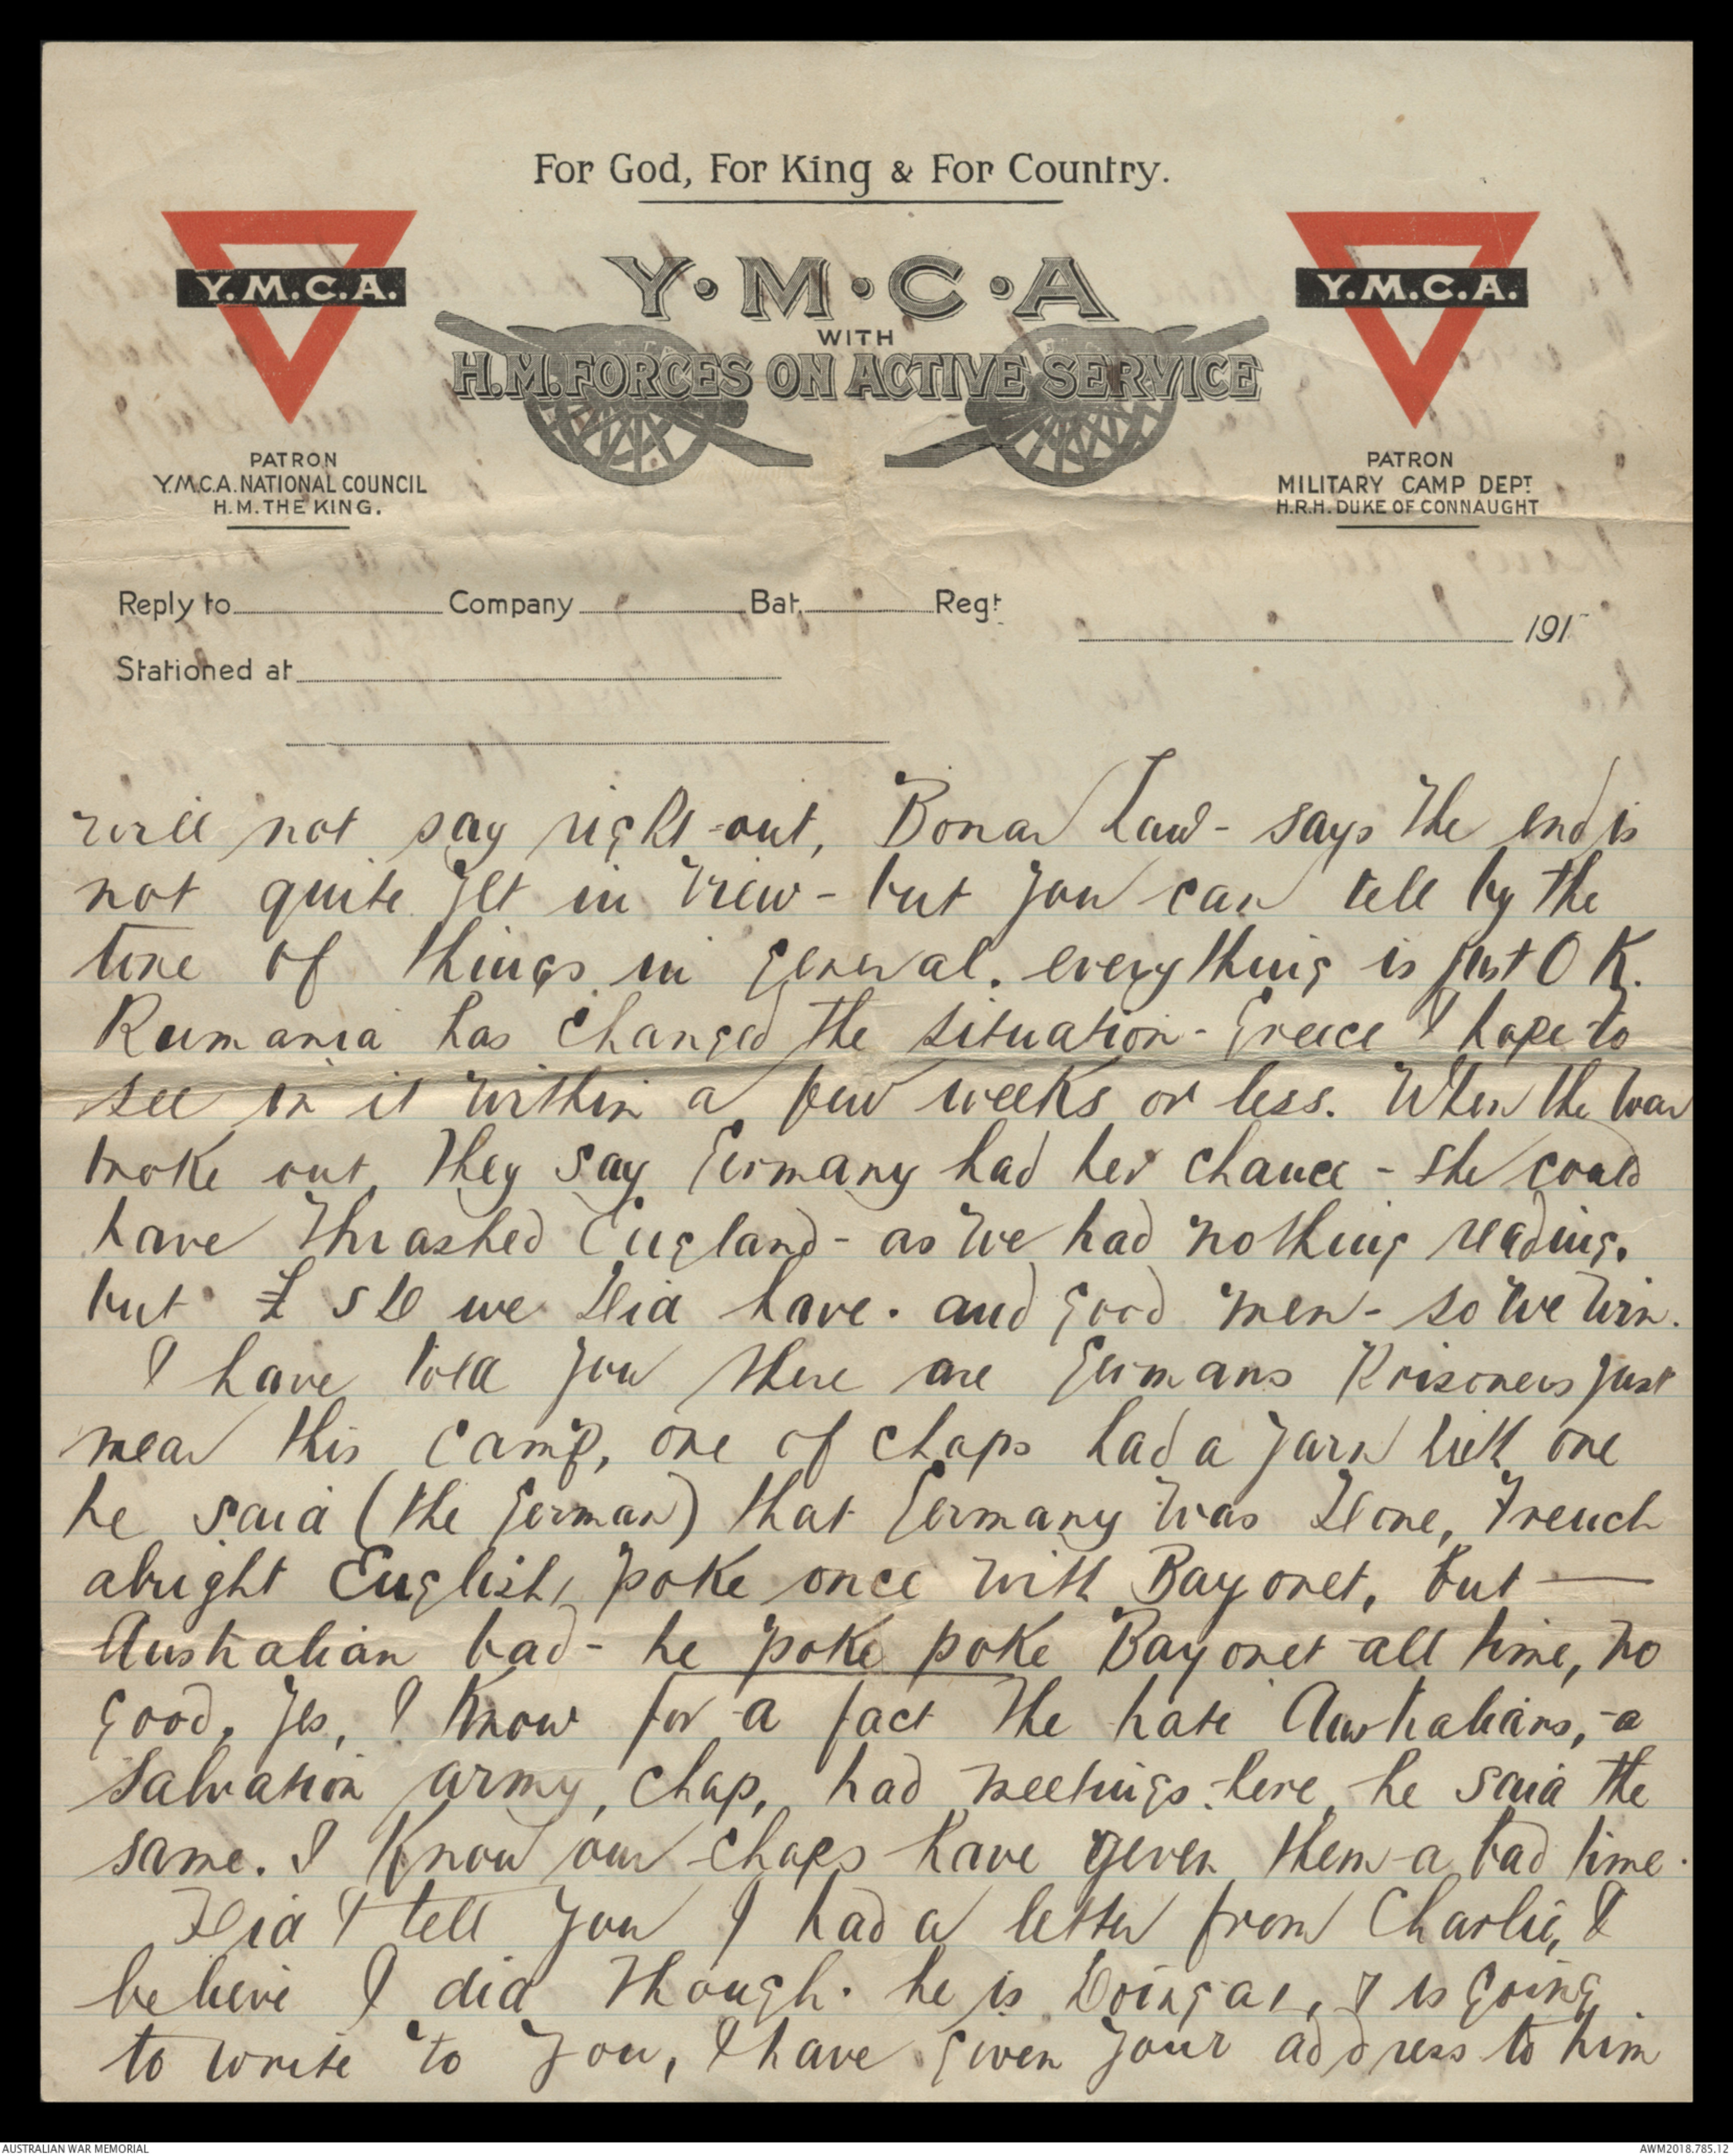 For God, For King & For Country.
Y.M.C.A.
Y·M·C·A
WITH
H.M. FORCES ON ACTIVE SERVICE
Y.M.C.A.
PATRON
Y.M.C.A. NATIONAL COUNCIL
H.M. THE KING.
PATRON
MILITARY CAMP DEPT
H.R.H. DUKE OF CONNAUGHT
Reply to Company Bat. Regt.
191
Stationed at
will not say right-out, Bonar Law - says the end is
not quite yet in view - but you can tell by the
tone of things in general. everything is just O K.
Rumania has changed the situation - Greece I hope to
see in it within a few weeks or less. When the war
broke out, they say Germany had her chance - she could
have thrashed England - as we had nothing reading.
but we did have. and good men - so we win.
I have told you there are Germans Prisoners just
near this camp, one of chaps had a yarn with one
he said (the German) that Germany was Done, French
alright English, poke once with Bayonet, but —
Australian bad - he poke poke Bayonet all time, no
good. Yes, I know for a fact the hate Australians, - a
Salvation army, chap, had meetings here, he said the
same. I know our chaps have given them a bad time.
Did I tell you I had a letter from Charlie, I
believe I did though. he is Doing , & is going
to write to you, I have given your address to him
AUSTRALIAN WAR MEMORIAL
AWM2018.785.12